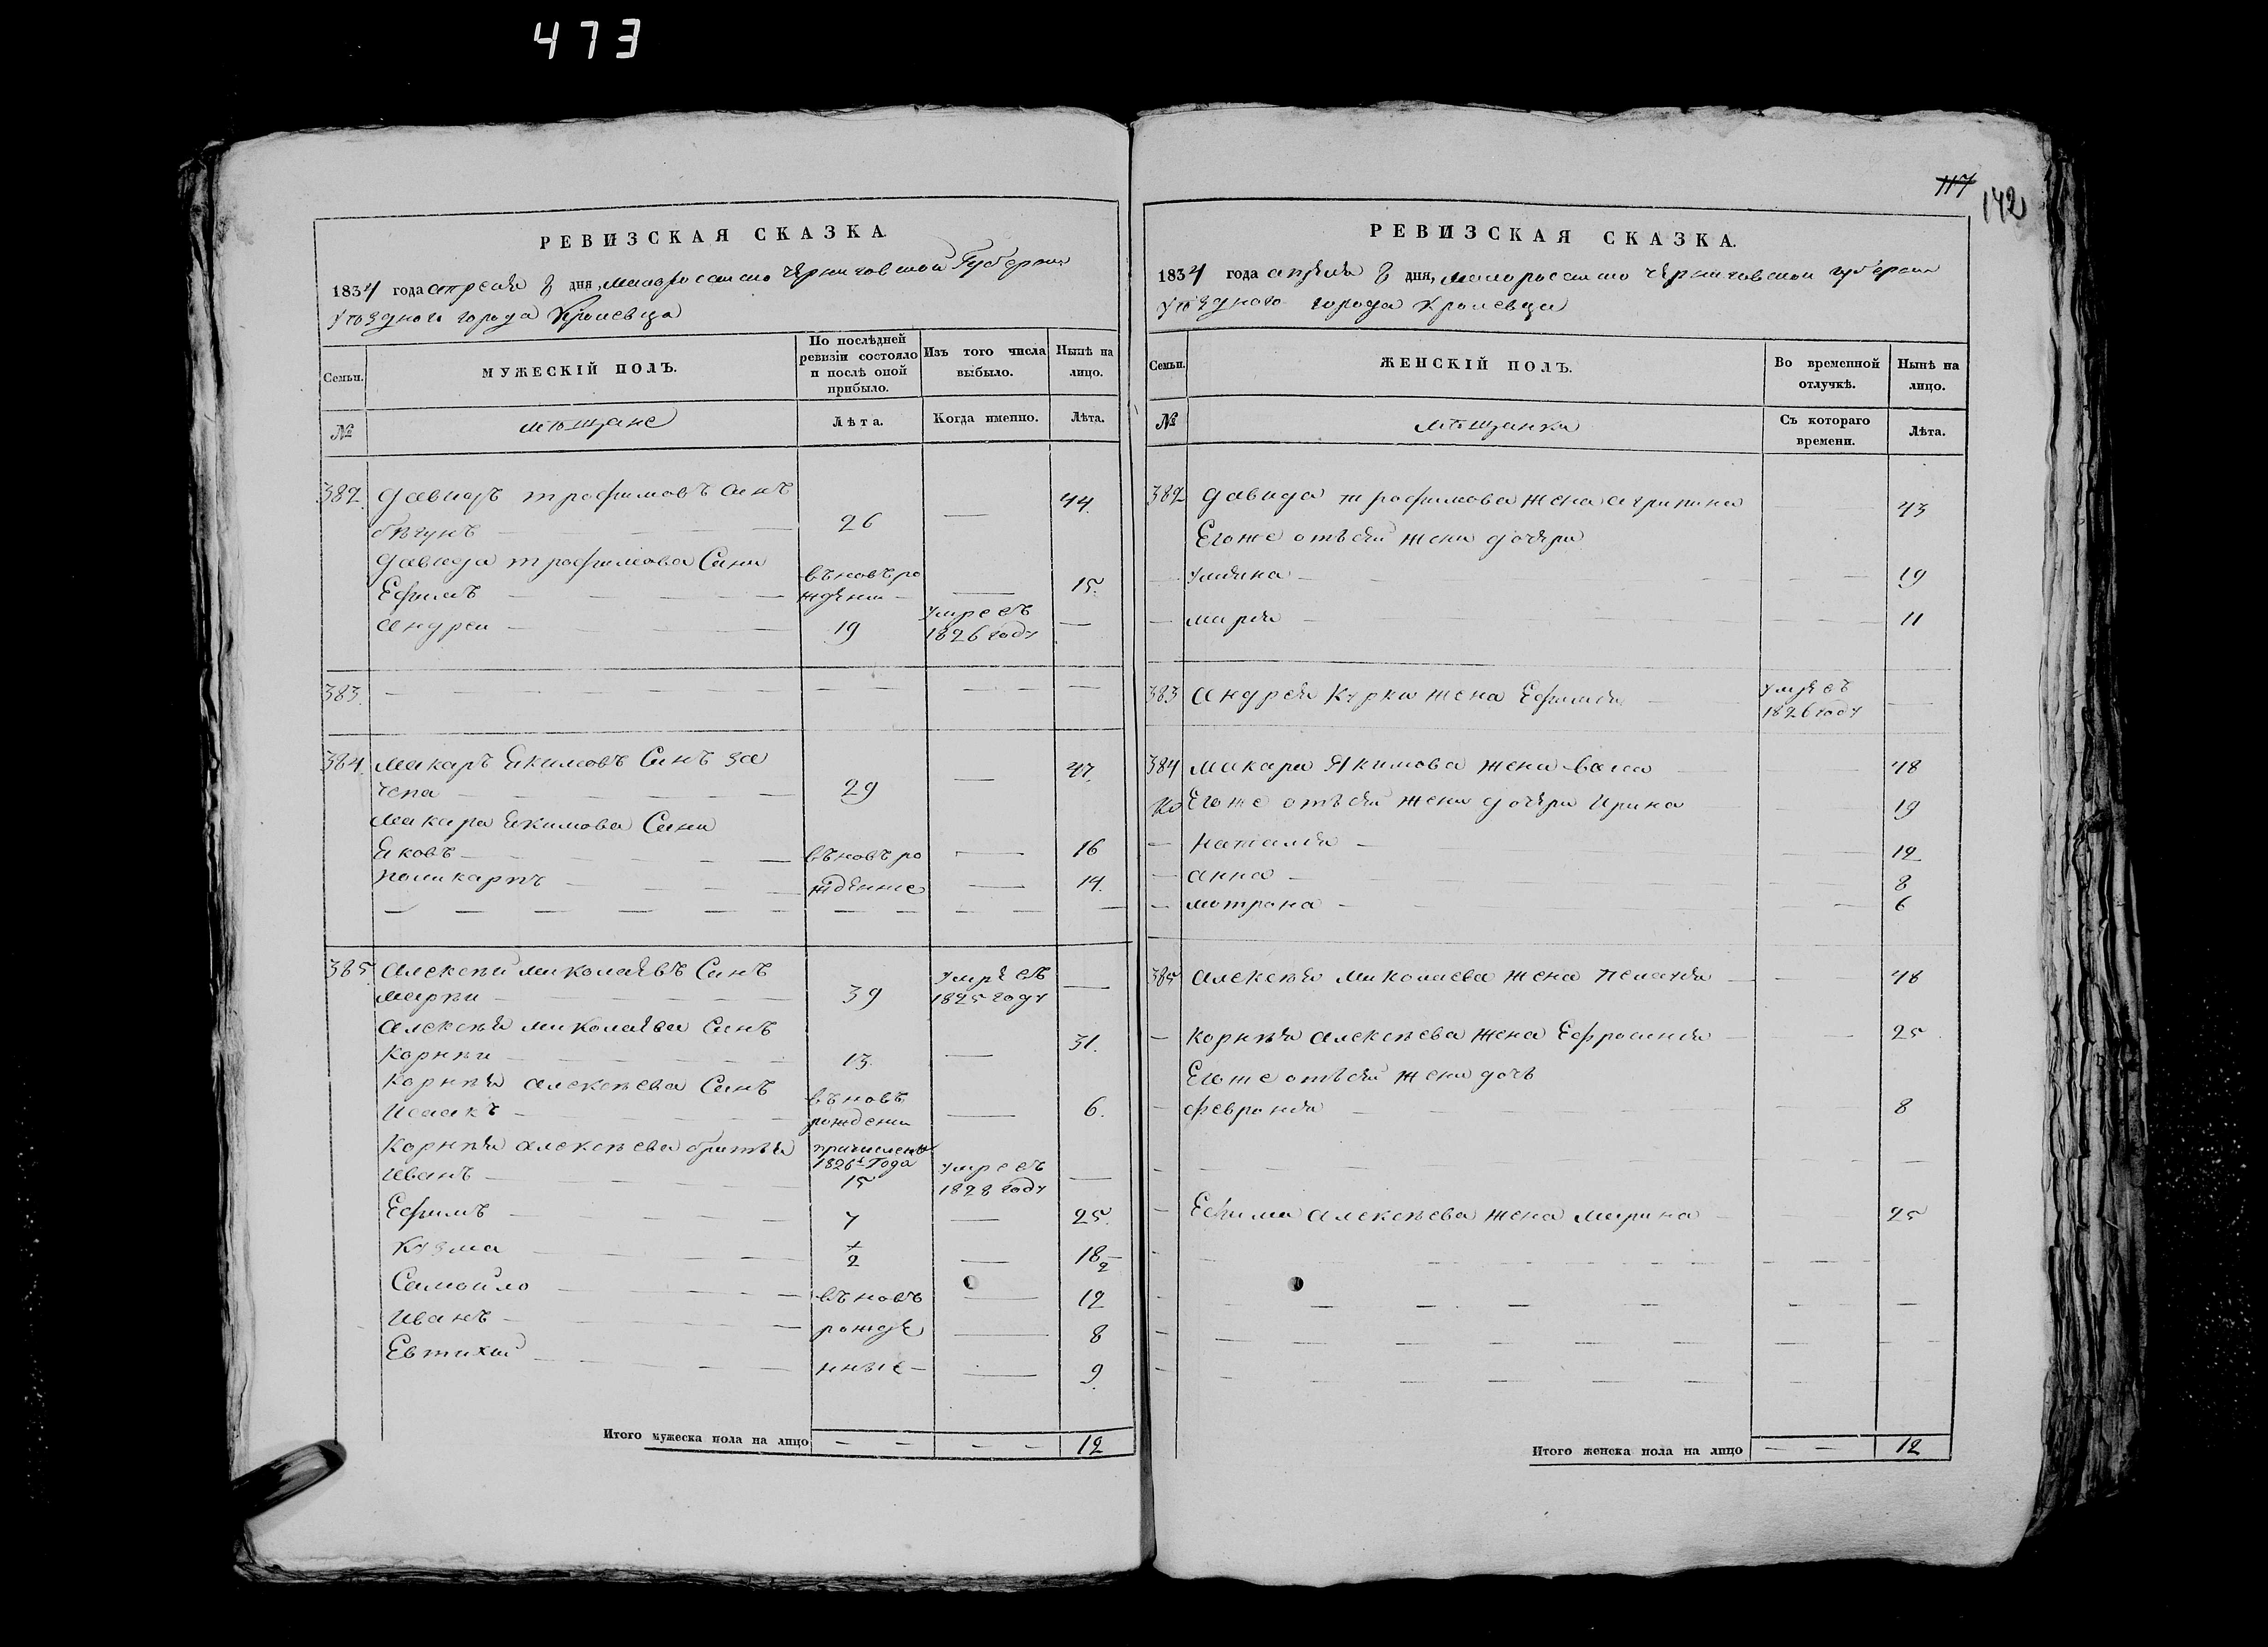 473
РЕВИЗСКАЯ СКАЗКА.
1834 года апреля 8 дня, малоросiиско черниговской Губернiи
Уѣзднаго города Кролевца
Семьи.
МУЖЕСКIЙ ПОЛЪ.
По послѣдней ревизiи состояло и послѣ оной прибыло.
Изъ того числа выбыло.
Нынѣ на лицо.
№
мѣщане
Лѣта.
Когда именно.
Лѣта.
382. Давидъ трофимовъ синъ
бѣгунъ — 26 — 44.
Давида трофимова Сини
Ефимъ — въновъ рождени — 15.
андреи — 19 умреълъ 1826 году —
383. — — —
384. макаръ Екимовъ Синъ за
чепа — 29 — 47.
макара Екимова Сини
Яковъ — въновъ ро — 16
поликарпъ — жденние — 14.
385. алексѣй миколаевъ Синъ
39 умре 1825 году —
алексѣя миколаева Синъ
Корнѣи — 13. — 31.
Корнѣя алексѣева Синъ
Исаакъ — въновъ рождени — 6.
Корнѣя алексѣева братья
Иванъ — причислени 1826 Года 15 умре 1828 году —
Ефимъ — 7 — 25.
Кузма — 1/2 — 18 1/2
Самойло — въновъ — 12
Иванъ — рожде — 8
Евтихий — нные — 9.
Итого мужеска пола на лицо — — 12
117
142
РЕВИЗСКАЯ СКАЗКА.
1834 года апреля 8 дня, малоросiиско черниговской губернiи
уѣзднаго города Кролевца
Семьи.
ЖЕНСКIЙ ПОЛЪ.
Во временной отлучкѣ.
Нынѣ на лицо.
№
мѣщанки
Съ котораго времени.
Лѣта.
382 Давида трофимова жена агрипина — 43
Егоже отъ сей жени дочери
улияна — 19
мария — 11
383 андрея Курки жена Ефимия — 1826 году —
384 макара Якимова жена — 48
Егоже отъ сей жени дочери Ирина — 19
наталия — 12
анна — 8
мотрона — 6
385 алексѣя миколаева жена пелагия — 48
Корнѣя алексѣева жена Ефросиния — 25
Егоже отъ сей жени дочь
феврония — 8
Ефима алексѣева жена марина — 25
Итого женска пола на лицо — — 12